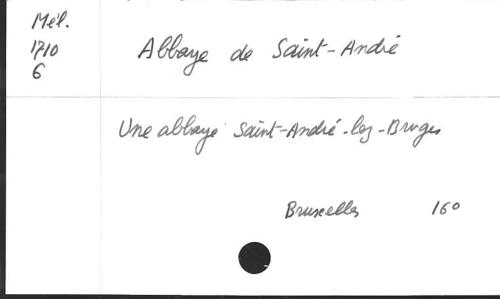 Mél.
1710
6
Abbaye de Saint-André
Une abbaye Saint-André-lez-Bruges
Bruxelles 160